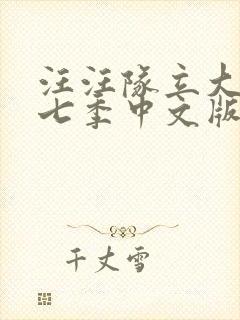 汪汪队立大
七季中文版
千丈雪